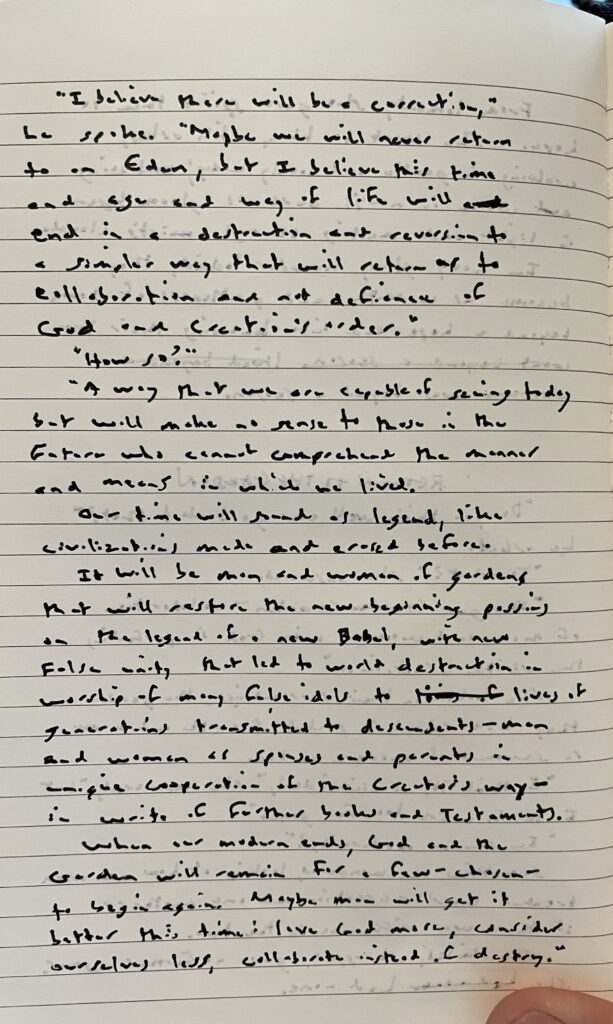 "I believe there will be a correction,"
he spoke. "Maybe we will never return
to an Eden, but I believe this time
and age and way of life will
end in a destruction and reversion to
a simpler way that will return us to
collaboration and not defiance of
God and Creation's order."
"How so?"
"A way that we are capable of seeing today
but will make no sense to those in the
future who cannot comprehend the manner
and means in which we lived.
Our time will sound as legend, like
civilizations made and erased before.
It will be men and women of gardens
that will restore the new beginning passing
on the legend of a new Babel, with new
false unity that led to world destruction in
worship of many false idols to lives of
generations transmitted to descendents - man
and women as spouses and parents in
unique cooperation of the Creator's way -
in write of further books and Testaments.
When our modern ends, God and the
Garden will remain for a few - chosen -
to begin again. Maybe man will get it
better this time: love God more, consider
ourselves less, collaborate instead of destroy."